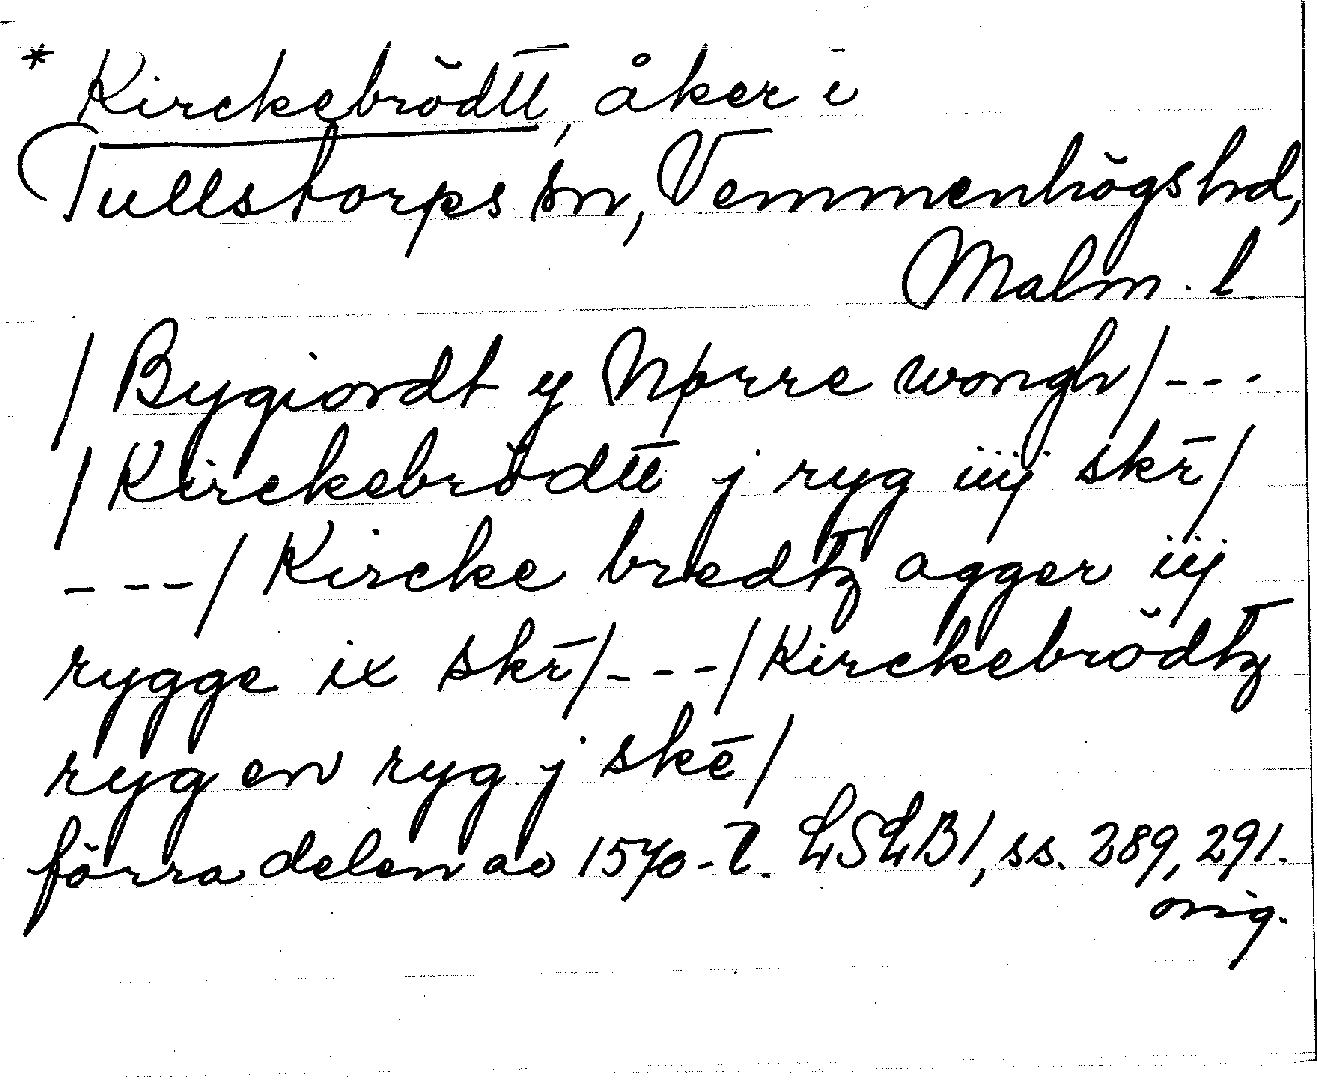 * Kirckebrödtt, åker i
Tullstorps sn, Vemmenhögs hd,
Malm. l.
/ Bygiordt ij Nørre wongh / - - -
/ Kirckebrödtt j ryg iiij skr̄ /
- - - / Kircke bredtz agger iij
rygge ix skr̄ / - - - / Kirckebrödtz
ryg en ryg j skē /
förra delen av 1570-t. LSLB 1, ss. 289, 291.
orig.